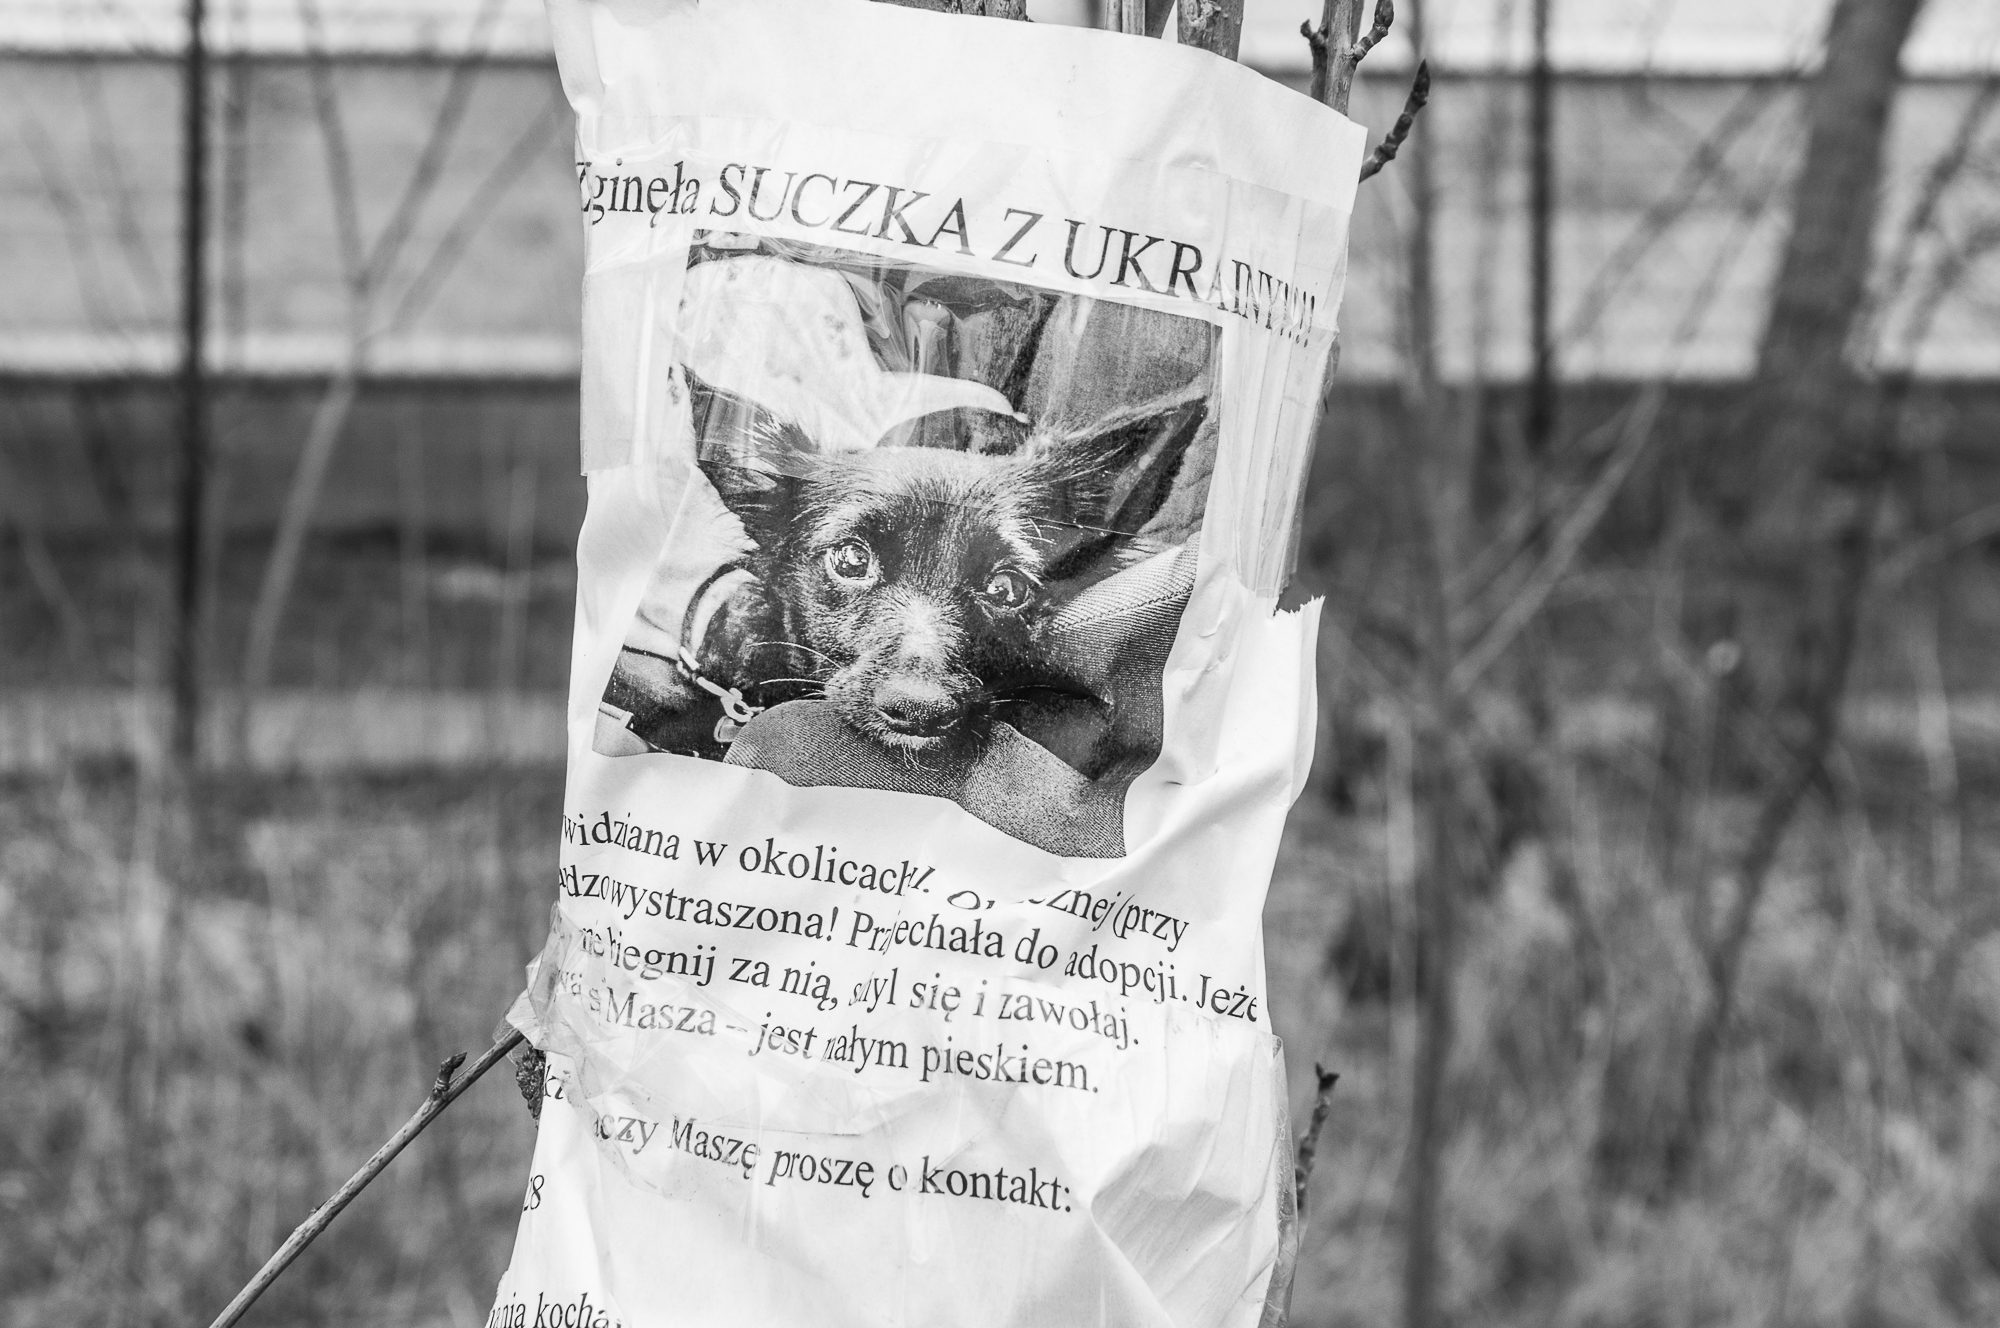 Zginęła SUCZKA Z UKRAINY!!!!
widziana w okolicach (przy
wystraszona! Przejechała do adopcji. Jeże
nie biegnij za nią, schyl się i zawołaj.
Masza – jest małym pieskiem.
Maszę proszę o kontakt:
28
kocha